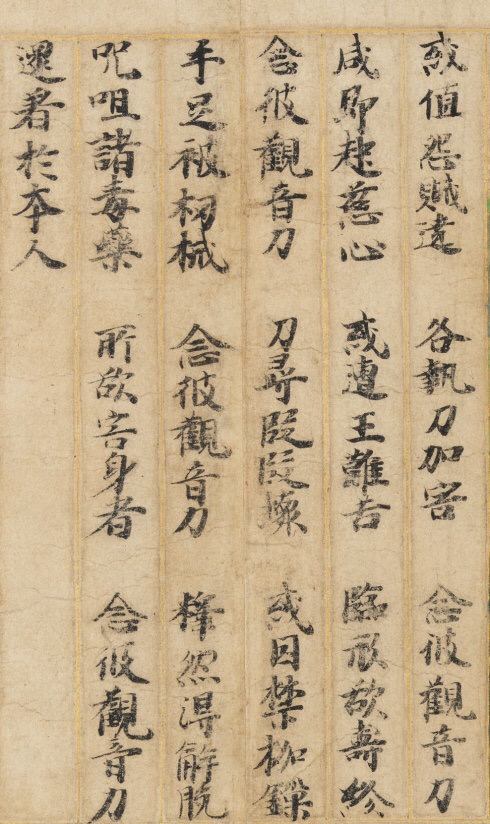 或值怨賊遶 各執刀加害 念彼觀音力
咸即起慈心 或遭王難苦 臨刑欲壽終
念彼觀音力 刀尋段段壞 或囚禁枷鎖
手足被杻械 念彼觀音力 釋然得解脫
呪咀諸毒藥 所欲害身者 念彼觀音力
還著於本人